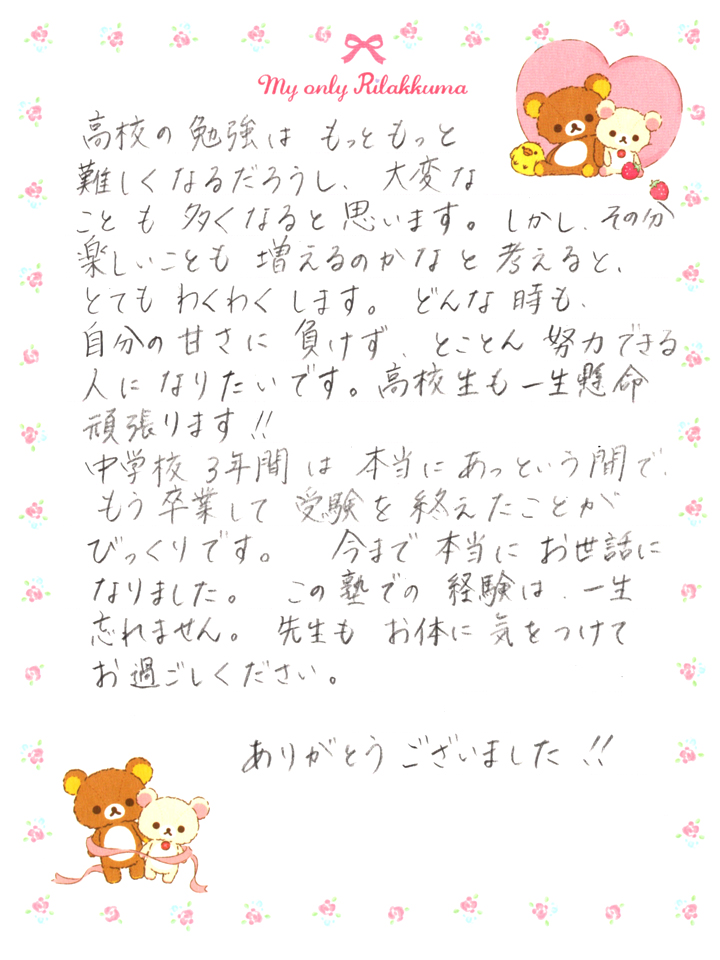 My only Rilakkuma
高校の勉強は もっともっと
難しくなるだろうし、大変な
ことも多くなると思います。しかし、その分
楽しいことも増えるのかなと考えると、
とてもわくわくします。どんな時も、
自分の甘さに負けず、とことん努力できる
人になりたいです。高校生も一生懸命
頑張ります!!
中学校3年間は本当にあっという間で、
もう卒業して受験を終えたことが
びっくりです。 今まで本当にお世話に
なりました。 この塾での経験は、一生
忘れません。先生もお体に気をつけて
お過ごしください。
ありがとうございました!!